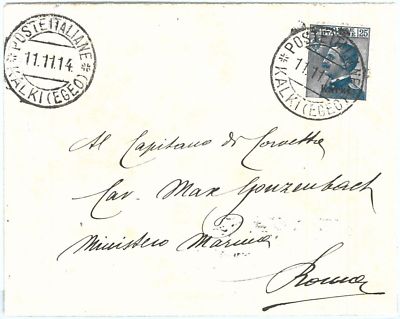 POSTE ITALIANE
11.11.14
* KALKI (EGEO) *
POSTE ITALIANE
11.11.14
* KALKI (EGEO) *
25
KARKI
Al Capitano di Corvetta
Cav. Max Gonzenbach
Ministero Marina
Roma